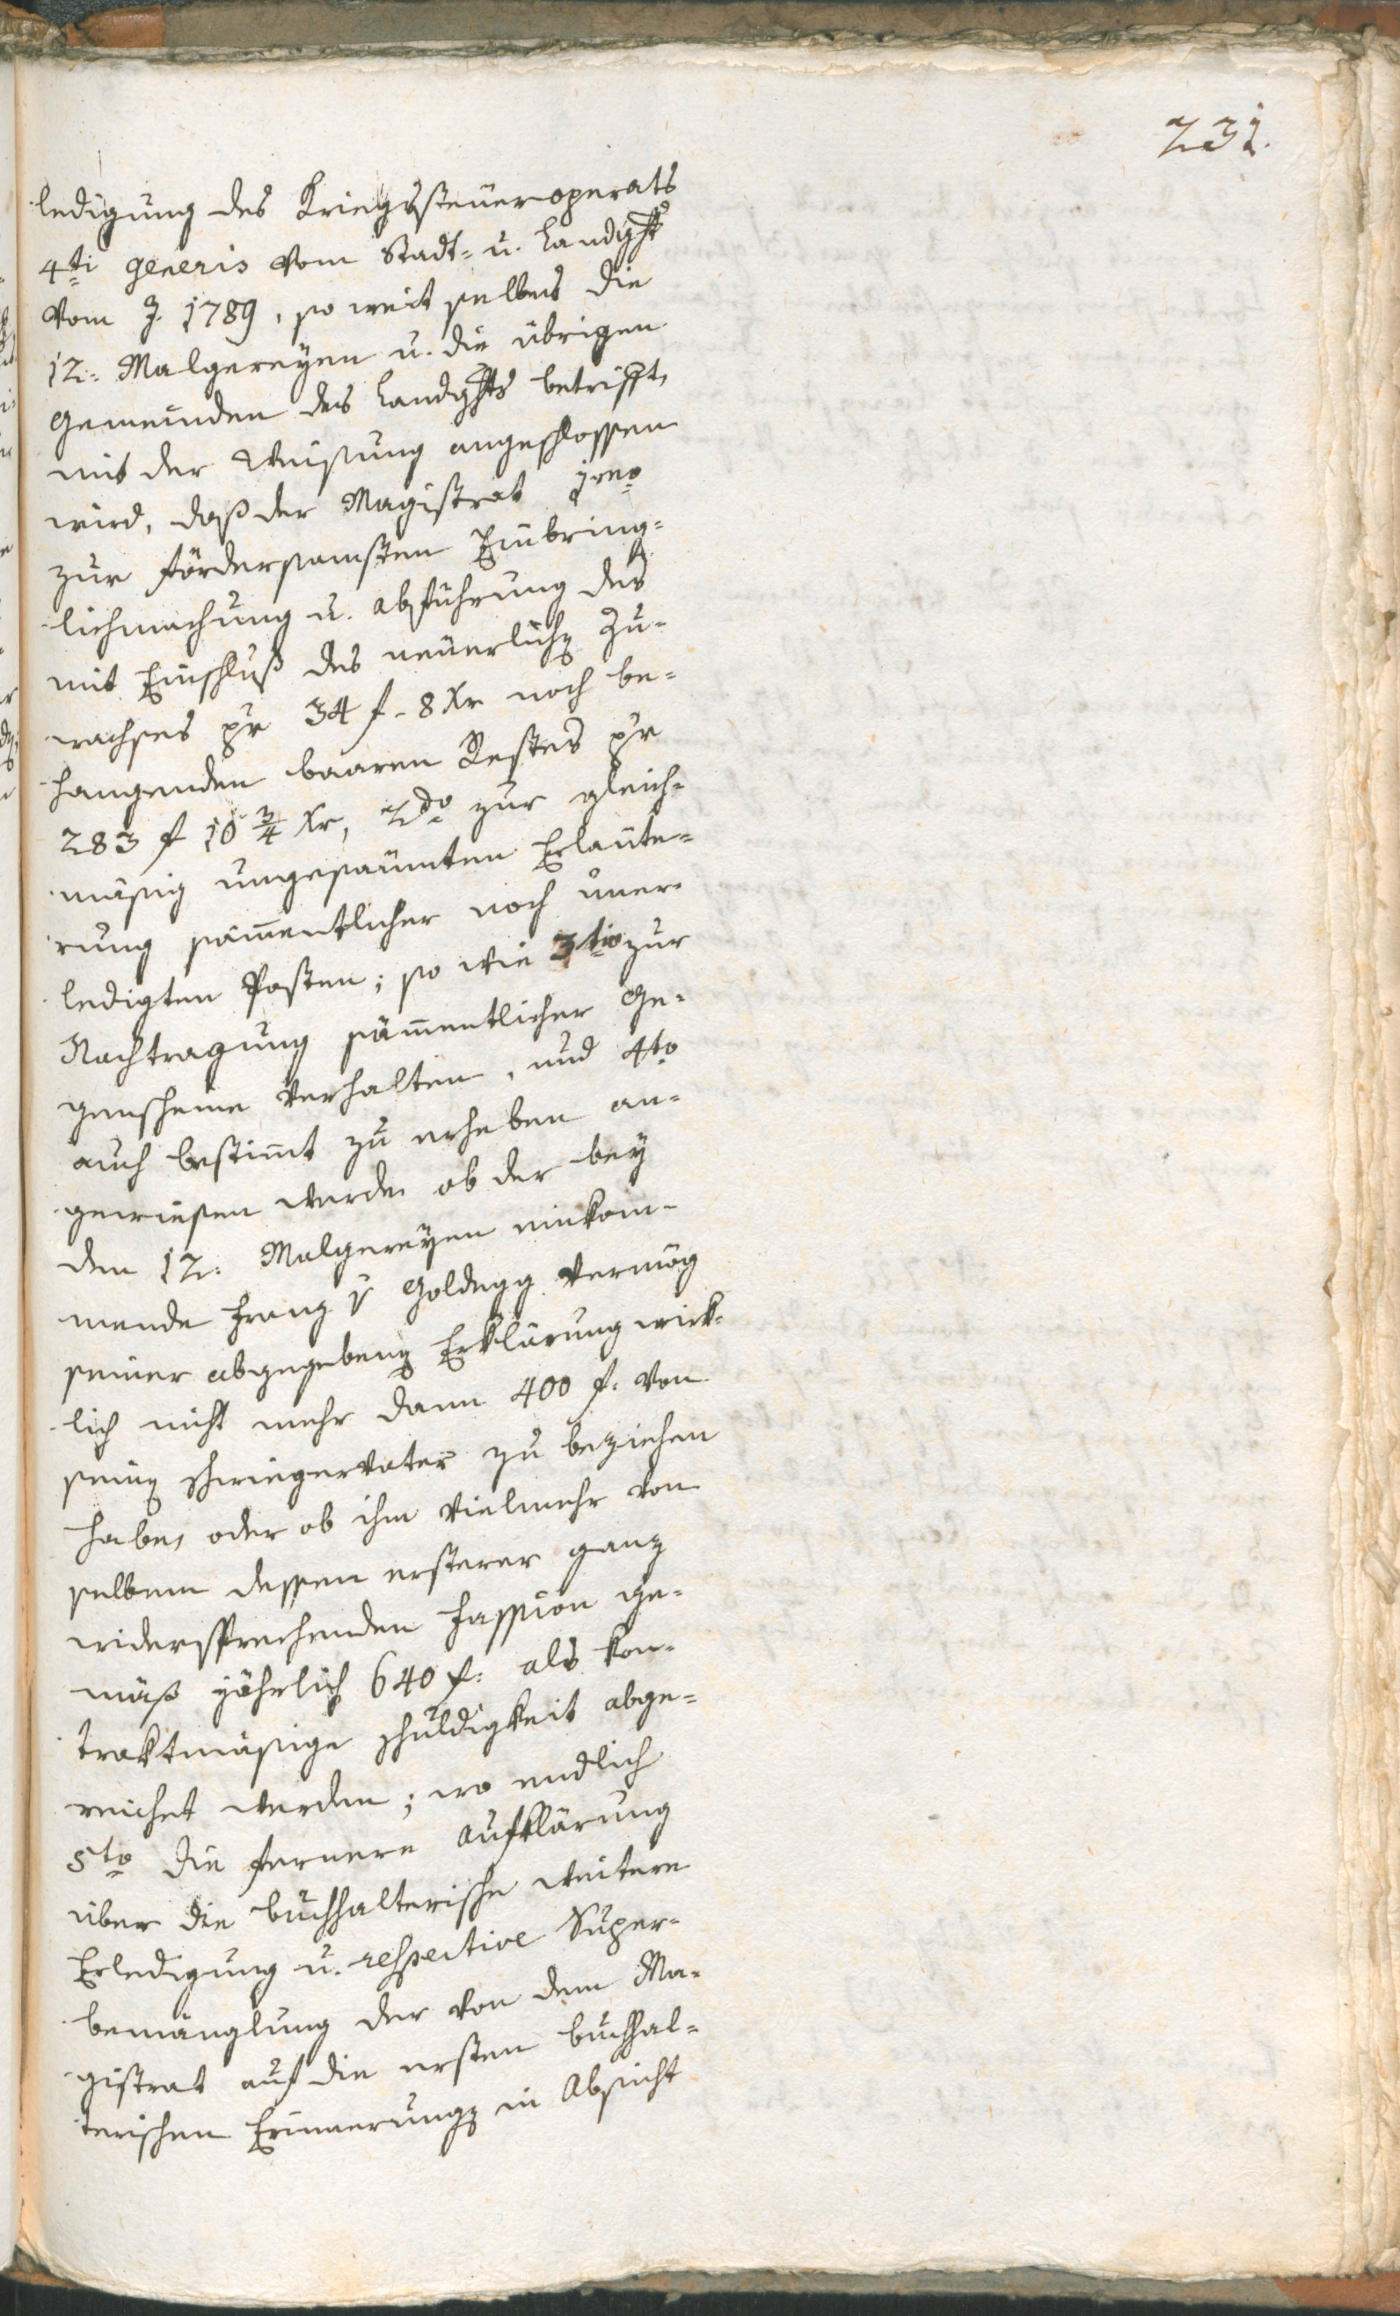 231.
ledigung des Kriegssteueroperats
4ti generis vom Stadt= u. Landght
vom J. 1789, so weit selbes die
12. Malgereyen u. die übrigen
Gemeinden des Landghts betrifft,
mit der Weisung angeschlossen
wird, daß der Magistrat 1mo
zur fördersamsten Einbring=
lichmachung u. Abführung des
mit Einschluß des neuerlichen Zu=
wachses pr 34 f. 8 Xr noch be=
hangenden baaren Restes pr
283 f 10 3/4 Xr, 2do zur gleich=
mäsig ungesäumten Erläute=
rung sämentlicher noch uner=
ledigten Posten; so wie 3tio zur
Nachtragung sämentlicher Ge=
genscheine verhalten, und 4to
auch bestimt zu erheben an=
gewiesen werde ob der bey
den 12. Malgereyen einkom=
mende Franz v Goldegg vermög
seiner abgegebenen Erklärung wirk=
lich nicht mehr dann 400 f. von
seinem Schwiegervater zu beziehen
habe, oder ob ihm vielmehr von
selbem dessen ersterer ganz
widersprechenden Fassion ge=
mäß jährlich 640 f. als kon=
traktmäsige Schuldigkeit abge=
reichet werden; wo endlich
5to die fernere Aufklärung
über die buchhalterische weitere
Erledigung u. respective Super=
bemänglung der von dem Ma=
gistrat auf die ersten buchhal=
terischen Erinnerungen in Absicht